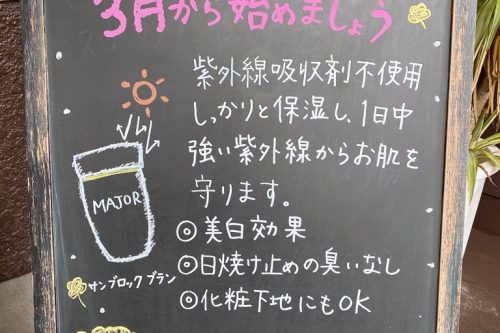 3月から始めましょう
紫外線吸収剤不使用
しっかりと保湿し、1日中
強い紫外線からお肌を
守ります。
◎美白効果
◎日焼け止めの臭いなし
◎化粧下地にもOK
MAJOR
サンブロック ブラン